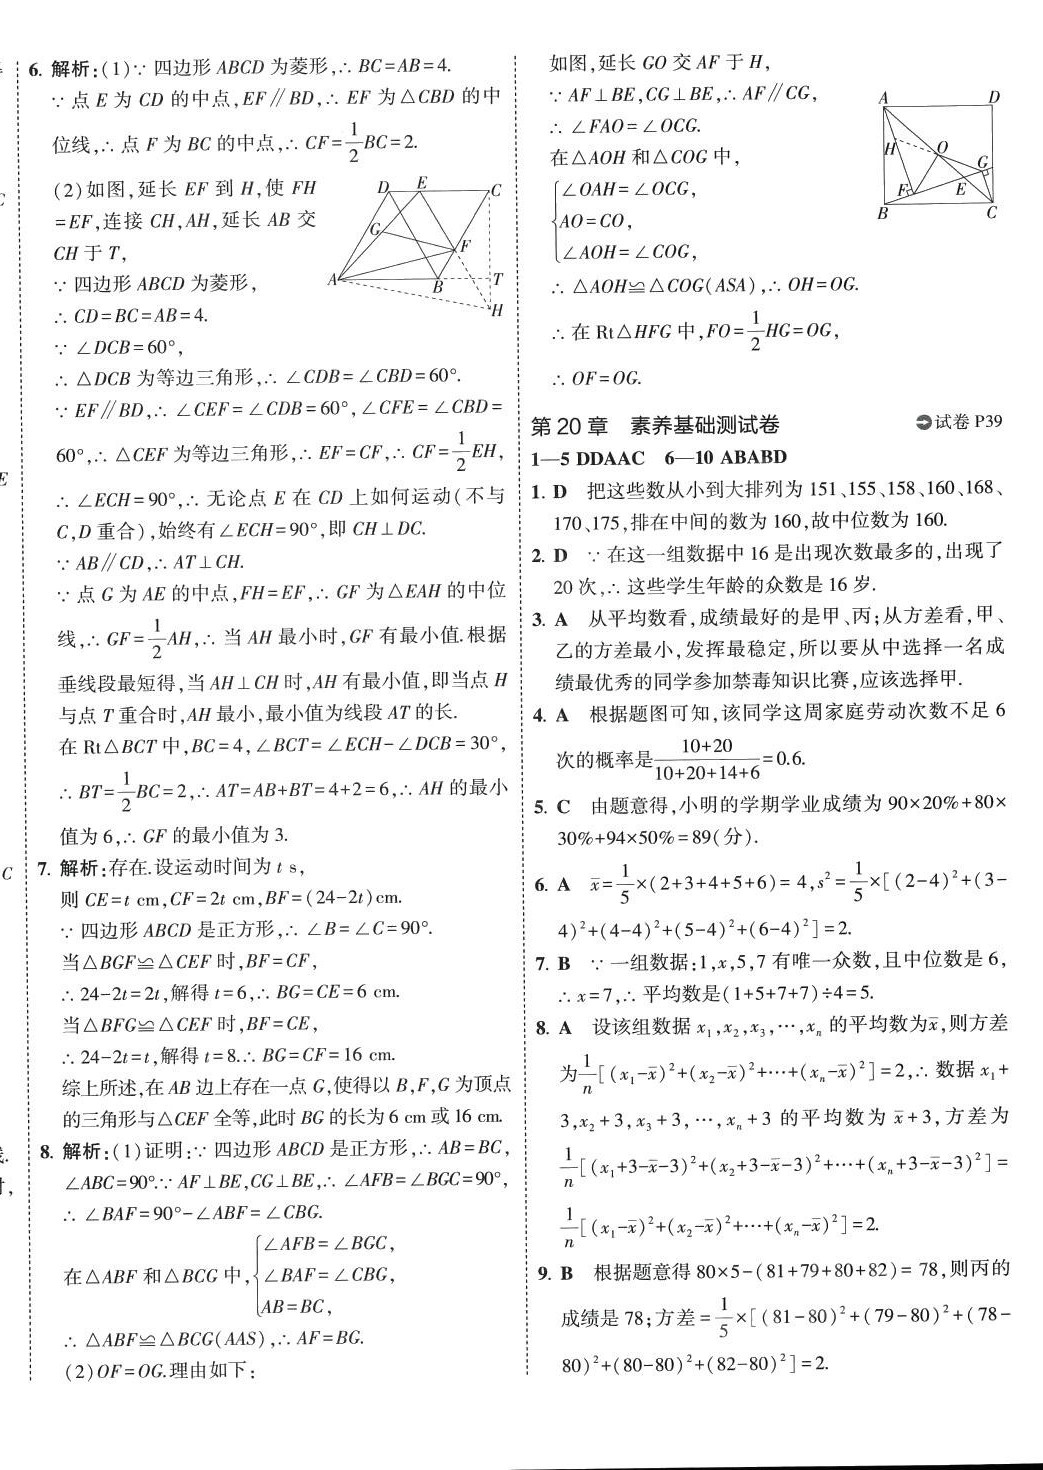 6. 解析:(1)∵ 四边形 ABCD 为菱形,∴ BC=AB=4.
∵ 点 E 为 CD 的中点,EF∥BD,∴ EF 为△CBD 的中
位线,∴ 点 F 为 BC 的中点,∴ CF=1/2BC=2.
(2)如图,延长 EF 到 H,使 FH
=EF,连接 CH,AH,延长 AB 交
CH 于 T,
∵ 四边形 ABCD 为菱形,
∴ CD=BC=AB=4.
D E C
G F
A B T
H
∵ ∠DCB=60°,
∴ △DCB 为等边三角形,∴ ∠CDB=∠CBD=60°.
∵ EF∥BD,∴ ∠CEF=∠CDB=60°,∠CFE=∠CBD=
60°,∴ △CEF 为等边三角形,∴ EF=CF,∴ CF=1/2EH,
∴ ∠ECH=90°,∴ 无论点 E 在 CD 上如何运动(不与
C,D 重合),始终有∠ECH=90°,即 CH⊥DC.
∵ AB∥CD,∴ AT⊥CH.
∵ 点 G 为 AE 的中点,FH=EF,∴ GF 为△EAH 的中位
线,∴ GF=1/2AH,∴ 当 AH 最小时,GF 有最小值.根据
垂线段最短得,当 AH⊥CH 时,AH 有最小值,即当点 H
与点 T 重合时,AH 最小,最小值为线段 AT 的长.
在 Rt△BCT 中,BC=4,∠BCT=∠ECH-∠DCB=30°,
∴ BT=1/2BC=2,∴ AT=AB+BT=4+2=6,∴ AH 的最小
值为 6,∴ GF 的最小值为 3.
7. 解析:存在.设运动时间为 t s,
则 CE=t cm,CF=2t cm,BF=(24-2t)cm.
∵ 四边形 ABCD 是正方形,∴ ∠B=∠C=90°.
当△BGF≌△CEF 时,BF=CF,
∴ 24-2t=2t,解得 t=6,∴ BG=CE=6 cm.
当△BFG≌△CEF 时,BF=CE,
∴ 24-2t=t,解得 t=8.∴ BG=CF=16 cm.
综上所述,在 AB 边上存在一点 G,使得以 B,F,G 为顶点
的三角形与△CEF 全等,此时 BG 的长为 6 cm 或 16 cm.
8. 解析:(1)证明:∵ 四边形 ABCD 是正方形,∴ AB=BC,
∠ABC=90°.∵ AF⊥BE,CG⊥BE,∴ ∠AFB=∠BGC=90°,
∴ ∠BAF=90°-∠ABF=∠CBG.
∠AFB=∠BGC,
在△ABF 和△BCG 中,{∠BAF=∠CBG,
AB=BC,
∴ △ABF≌△BCG(AAS),∴ AF=BG.
(2)OF=OG.理由如下:
如图,延长 GO 交 AF 于 H,
∵ AF⊥BE,CG⊥BE,∴ AF∥CG,
∴ ∠FAO=∠OCG.
在△AOH 和△COG 中,
{∠OAH=∠OCG,
AO=CO,
∠AOH=∠COG,
A D
H O G
F E
B C
∴ △AOH≌△COG(ASA),∴ OH=OG.
∴ 在 Rt△HFG 中,FO=1/2HG=OG,
∴ OF=OG.
第 20 章 素养基础测试卷 试卷 P39
1—5 DDAAC 6—10 ABABD
1. D 把这些数从小到大排列为 151、155、158、160、168、
170、175,排在中间的数为 160,故中位数为 160.
2. D ∵ 在这一组数据中 16 是出现次数最多的,出现了
20 次,∴ 这些学生年龄的众数是 16 岁.
3. A 从平均数看,成绩最好的是甲、丙;从方差看,甲、
乙的方差最小,发挥最稳定,所以要从中选择一名成
绩最优秀的同学参加禁毒知识比赛,应该选择甲.
4. A 根据题图可知,该同学这周家庭劳动次数不足 6
次的概率是(10+20)/(10+20+14+6)=0.6.
5. C 由题意得,小明的学期学业成绩为 90×20%+80×
30%+94×50%=89(分).
6. A x̄=1/5×(2+3+4+5+6)=4,s²=1/5×[(2-4)²+(3-
4)²+(4-4)²+(5-4)²+(6-4)²]=2.
7. B ∵ 一组数据:1,x,5,7 有唯一众数,且中位数是 6,
∴ x=7,∴ 平均数是(1+5+7+7)÷4=5.
8. A 设该组数据 x₁,x₂,x₃,⋯,xₙ 的平均数为x̄,则方差
为1/n[(x₁-x̄)²+(x₂-x̄)²+⋯+(xₙ-x̄)²]=2,∴ 数据 x₁+
3,x₂+3,x₃+3,⋯,xₙ+3 的平均数为 x̄+3,方差为
1/n[(x₁+3-x̄-3)²+(x₂+3-x̄-3)²+⋯+(xₙ+3-x̄-3)²]=
1/n[(x₁-x̄)²+(x₂-x̄)²+⋯+(xₙ-x̄)²]=2.
9. B 根据题意得 80×5-(81+79+80+82)=78,则丙的
成绩是 78;方差=1/5×[(81-80)²+(79-80)²+(78-
80)²+(80-80)²+(82-80)²]=2.